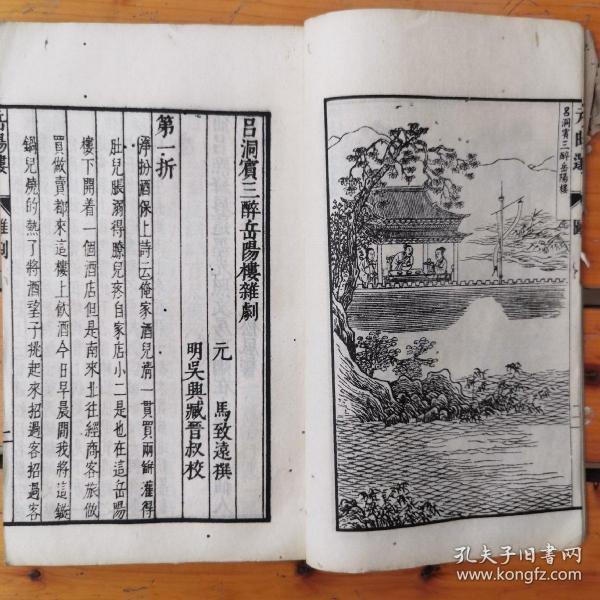 元曲選
圖
呂洞賓三醉岳陽樓
呂洞賓三醉岳陽樓雜劇
元 馬致遠撰
明吳興臧晉叔校
第一折
淨扮酒保上詩云俺家酒兒清一貫買兩餅灌得
肚兒脹溺得膫兒疼自家店小二是也在這岳陽
樓下開着一個酒店但是南來北往經商客旅做
買做賣都來這樓上飲酒今日早晨間我將這鏇
鍋兒燒的熱了將酒望子挑起來招過客招過客
岳陽樓
雜劇
二
孔夫子旧书网
www.kongfz.com